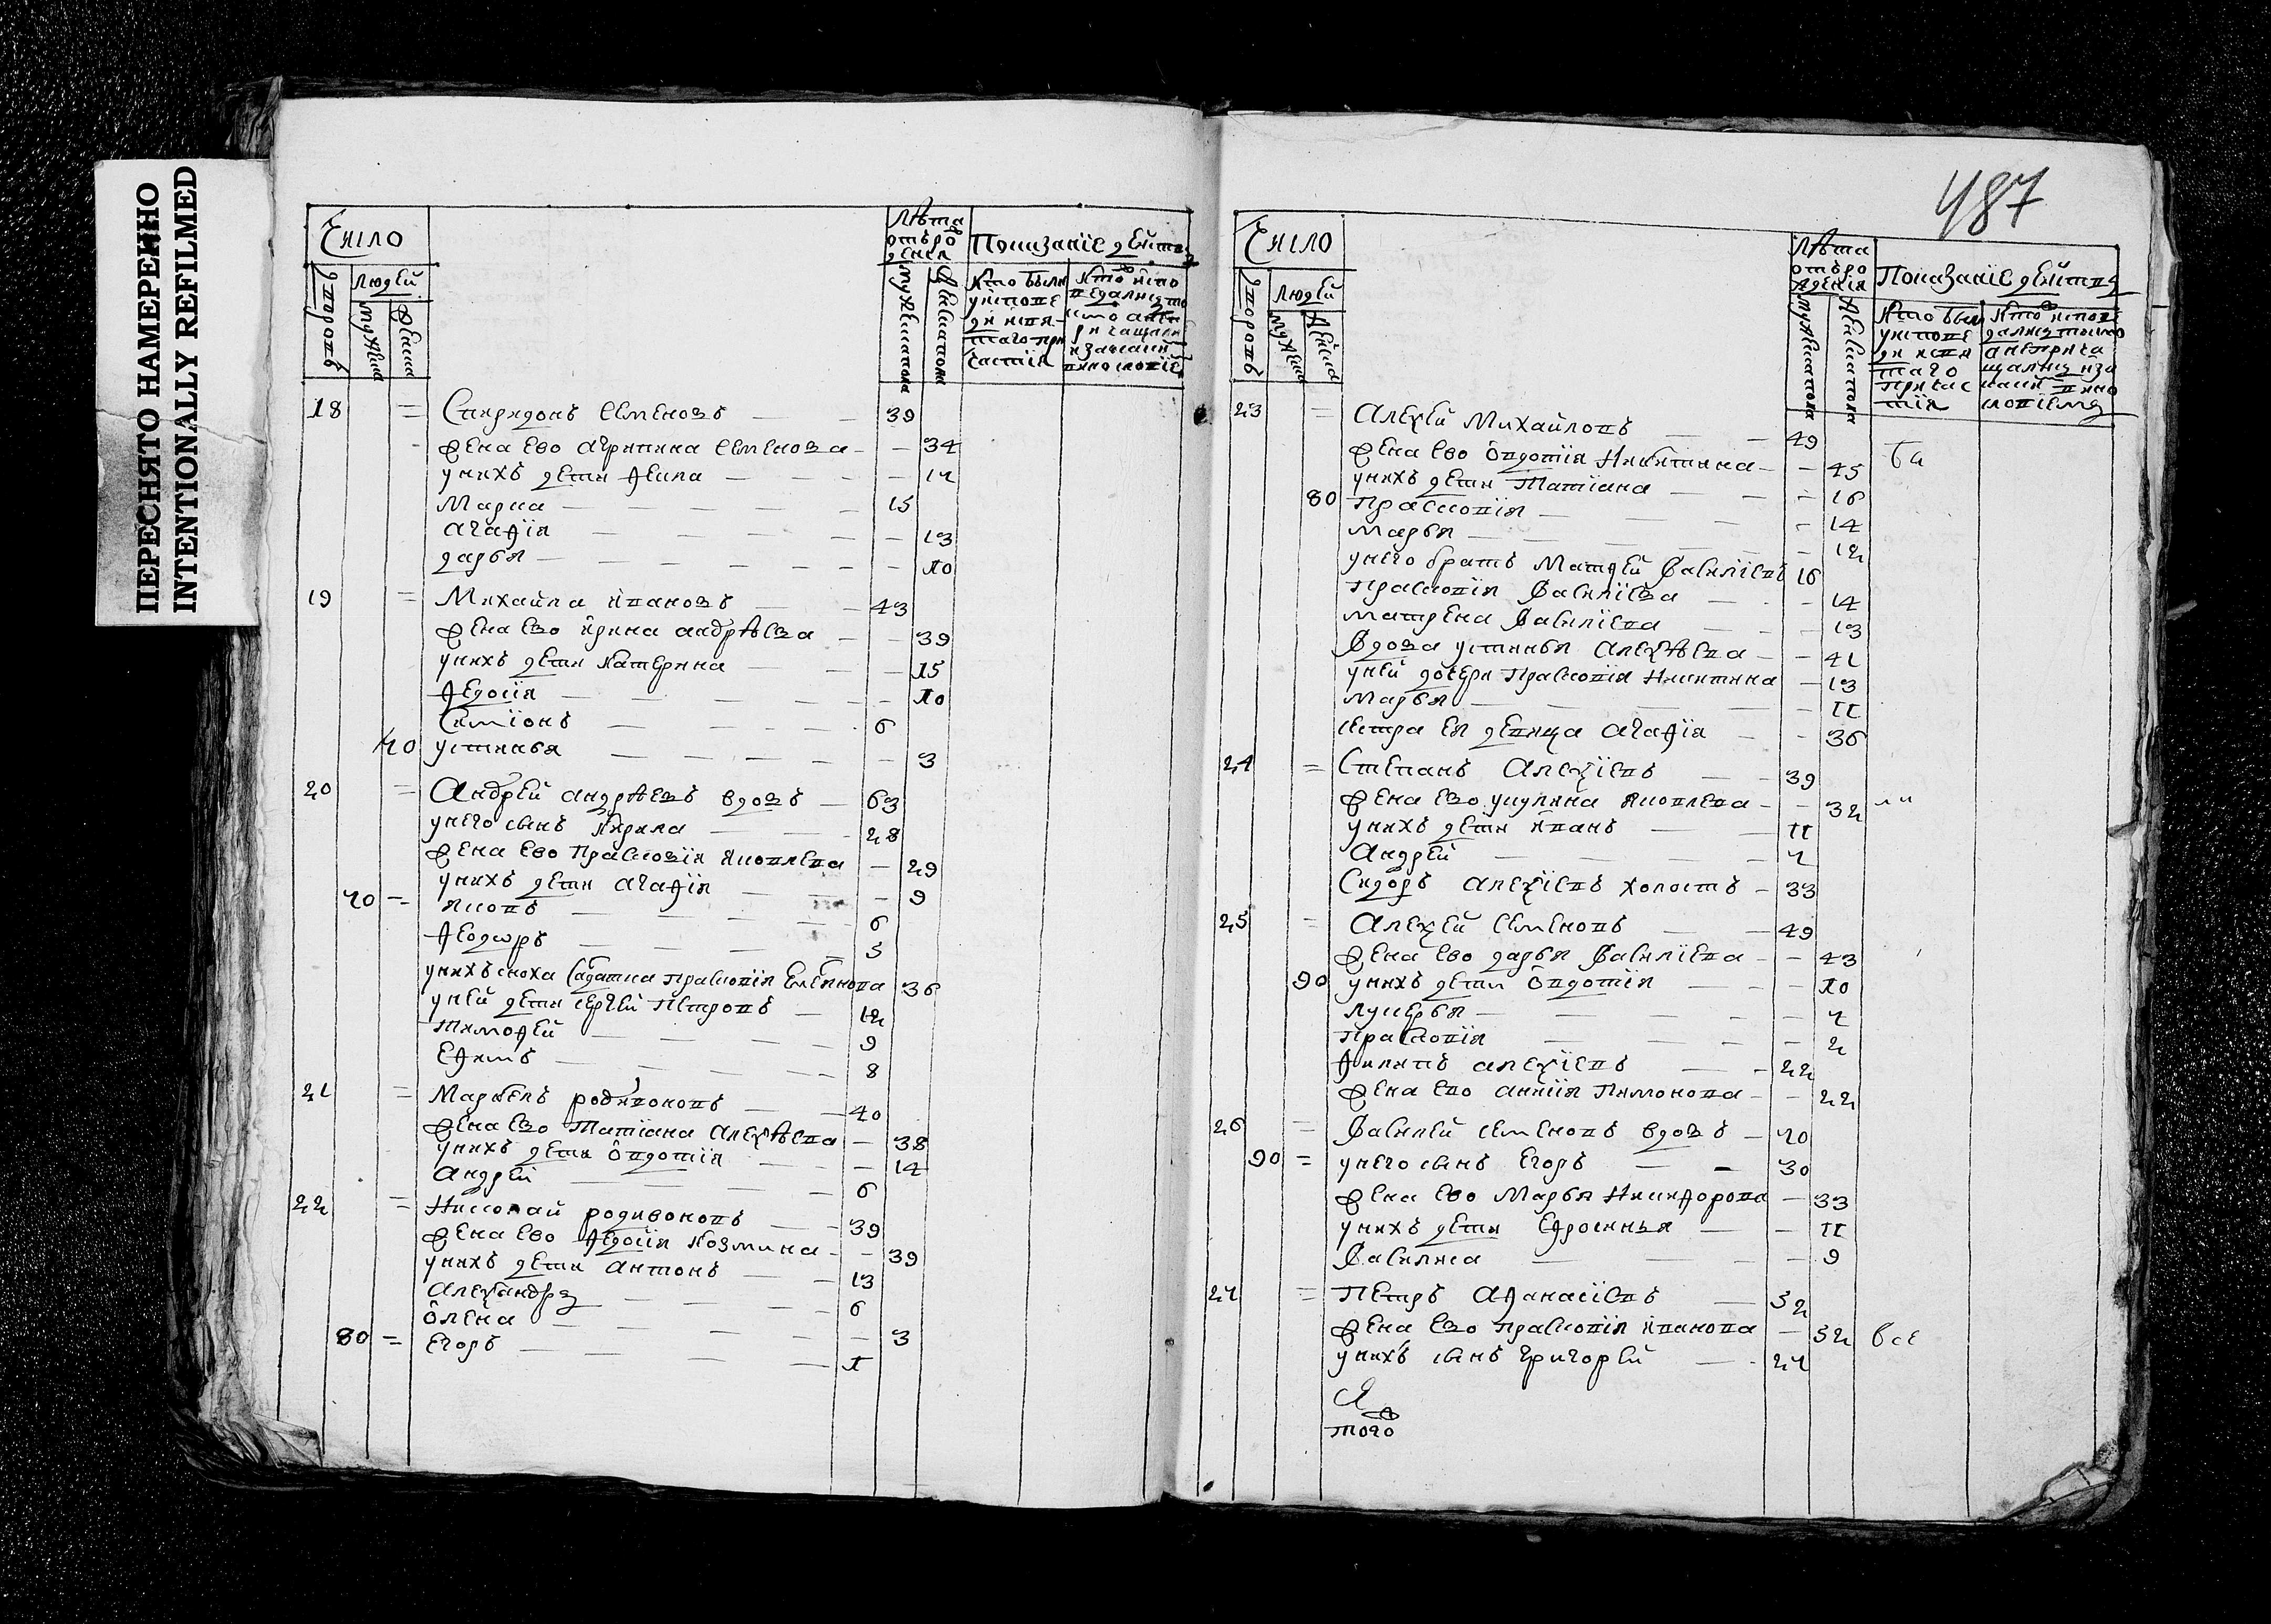 ПЕРЕСНЯТО НАМЕРЕННО
INTENTIONALLY REFILMED
Число
дворовъ
людей
мужеска
женска
Лѣта
отъ ро
ждения
мужеска пола
женска пола
Показанїе действ
Кто были
у исповѣ
ди и свя
таго при
частїя
18 = Спиридонъ Семеновъ 39
жена ево Агрипина Семенова 34
у нихъ дети Фекла 14
Марка 15
Агафїя 13
дарья 10
19 = Михайла Ивановъ 43
жена ево Ирина андрѣева 39
у нихъ дети Катерина 15
Федосїя 10
Симїонъ 6
40 устинья 3
20 = Андрей андрѣевъ вдовъ 63
у него сынъ Кирила 28
жена ево Прасковїя Яковлева 29
у нихъ дети Агафїя 9
70 = Яковъ 6
Феодоръ 5
у нихъ сноха Солдатка Прасковїя Емелянова 36
у ней дети сергей Петровъ 12
Тимофей 9
Ефимъ 8
21 = Маркелъ родивоновъ 40
жена ево Татїана Алеѯѣева 38
у нихъ дети Овдотїя 14
Андрей 6
22 = Николай родивоновъ 39
жена ево Федосїя Козмина 39
у нихъ дети Антонъ 13
Алеѯандръ 6
Олена 3
80 = Егоръ 1
487
Число
дворовъ
людей
мужеска
женска
Лѣта
отъ ро
жденїя
мужеска пола
женска пола
Показанїе действъ
Кто были
у исповѣ
ди и свя
таго
причас
тїя
23 = Алеѯей Михайловъ 49
жена ево Овдотїя Никитина 45
у нихъ дети Татїана 16
80 Прасковїя 14
марья 12
у него братъ Матфей Василїевъ 16
Прасковїя Василїева 14
матрена Василїева 13
Вдова устинья Алеѯѣева 41
у ней дочери Прасковїя Никитина 13
марья 11
сестра Ея девица Агафїя 36
24 = Степанъ Алеѯїевъ 39
жена ево укулина Яковлева 32
у нихъ дети Иванъ 11
Андрей 7
Сидоръ Алеѯїевъ холостъ 33
25 = Алеѯей Семеновъ 49
жена ево дарья Василїева 43
90 у нихъ дети Овдотїя 10
лукерья 7
Прасковїя 2
Филипъ алеѯїевъ 22
жена ево анисїя Пимонова 22
26 = Василей семеновъ вдовъ 70
90 = у него сынъ Егоръ 30
жена ево Марья Никифорова 33
у нихъ дети Ефросинья 11
Василиса 9
27 = Петръ Афанасїевъ 52
жена ево прасковїя Иванова 52 все
у нихъ сынъ григорей 27
И
того